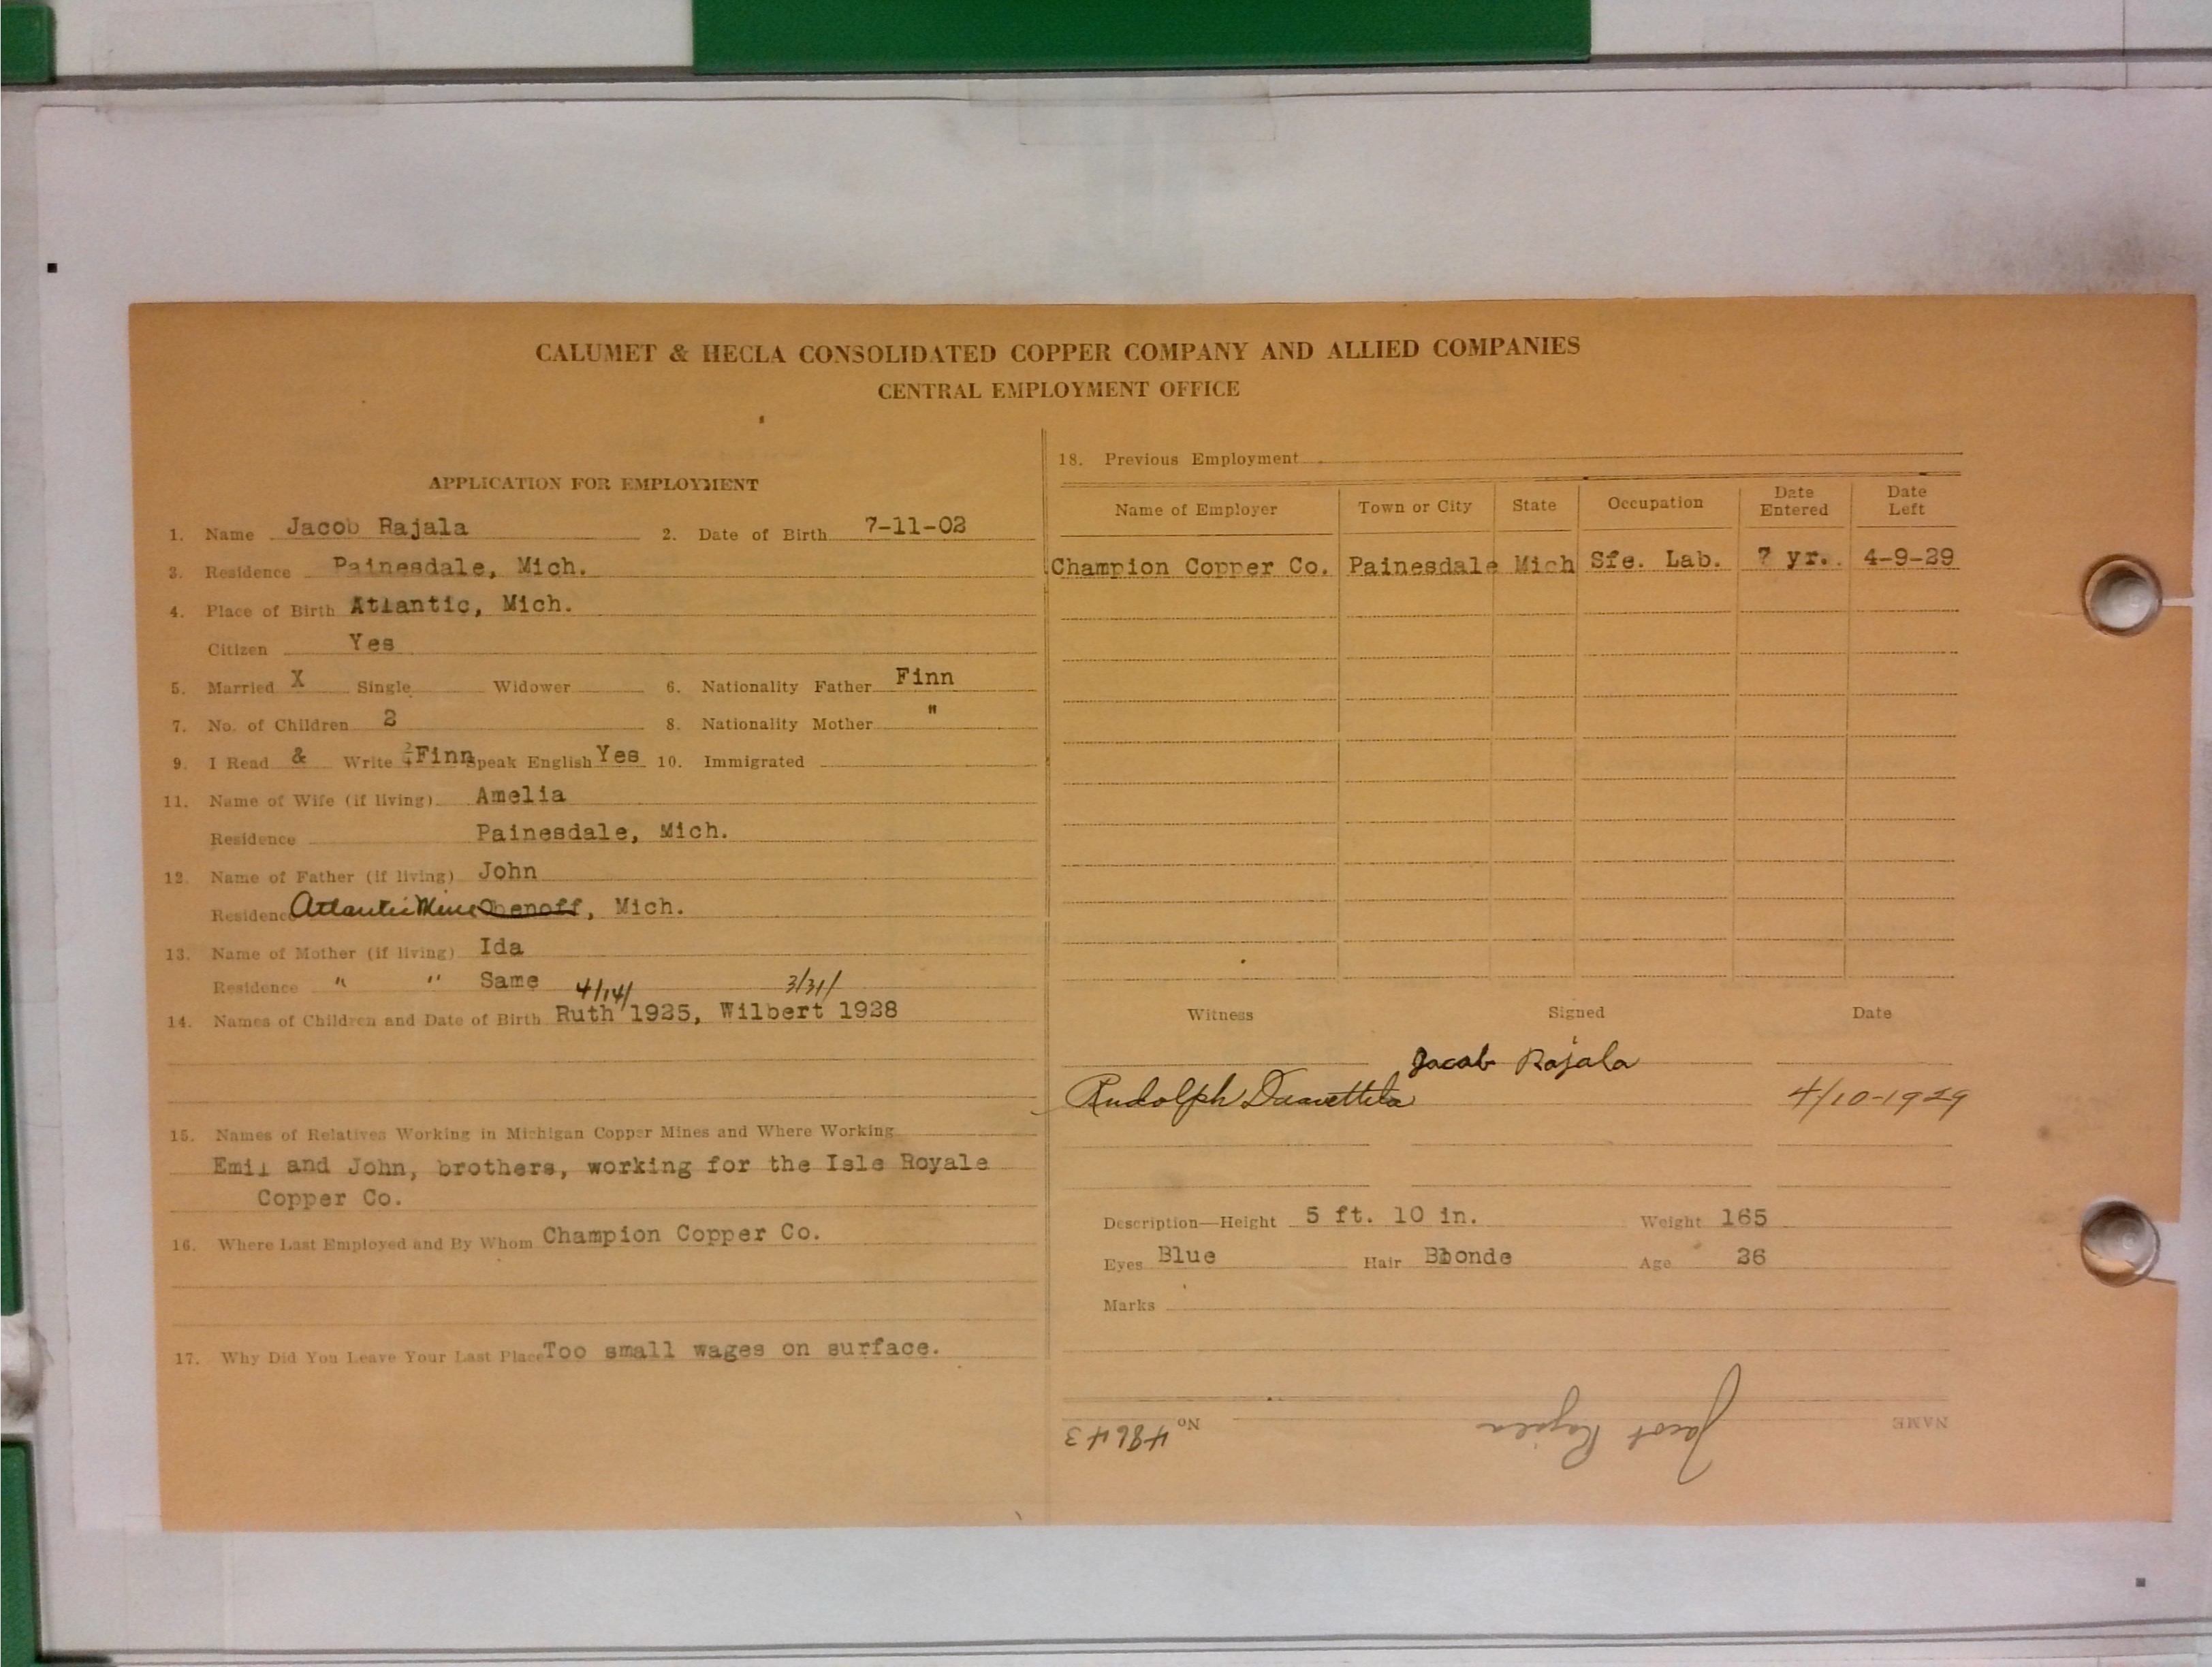 CALUMET & HECLA CONSOLIDATED COPPER COMPANY AND ALLIED COMPANIES
CENTRAL EMPLOYMENT OFFICE
APPLICATION FOR EMPLOYMENT
1. Name Jacob Rajala 2. Date of Birth 7-11-02
3. Residence Painesdale, Mich.
4. Place of Birth Atlantic, Mich.
Citizen Yes
5. Married X Single Widower 6. Nationality Father Finn
7. No. of Children 2 8. Nationality Mother "
9. I Read & Write Finn Speak English Yes 10. Immigrated
11. Name of Wife (if living) Amelia
Residence Painesdale, Mich.
12. Name of Father (if living) John
Residence Atlantic Mine Obenoff, Mich.
13. Name of Mother (if living) Ida
Residence " " Same
4/14/ 3/31/
14. Names of Children and Date of Birth Ruth 1925, Wilbert 1928
15. Names of Relatives Working in Michigan Copper Mines and Where Working
Emil and John, brothers, working for the Isle Royale
Copper Co.
16. Where Last Employed and By Whom Champion Copper Co.
17. Why Did You Leave Your Last Place Too small wages on surface.
18. Previous Employment
Name of Employer Town or City State Occupation Date Entered Date Left
Champion Copper Co. Painesdale Mich Sfe. Lab. 7 yr. 4-9-29
Witness Signed Date
Jacob Rajala
Rudolph 4/10-1929
Description—Height 5 ft. 10 in. Weight 165
Eyes Blue Hair Blonde Age 26
Marks
NAME Jacob Rajala No 48643